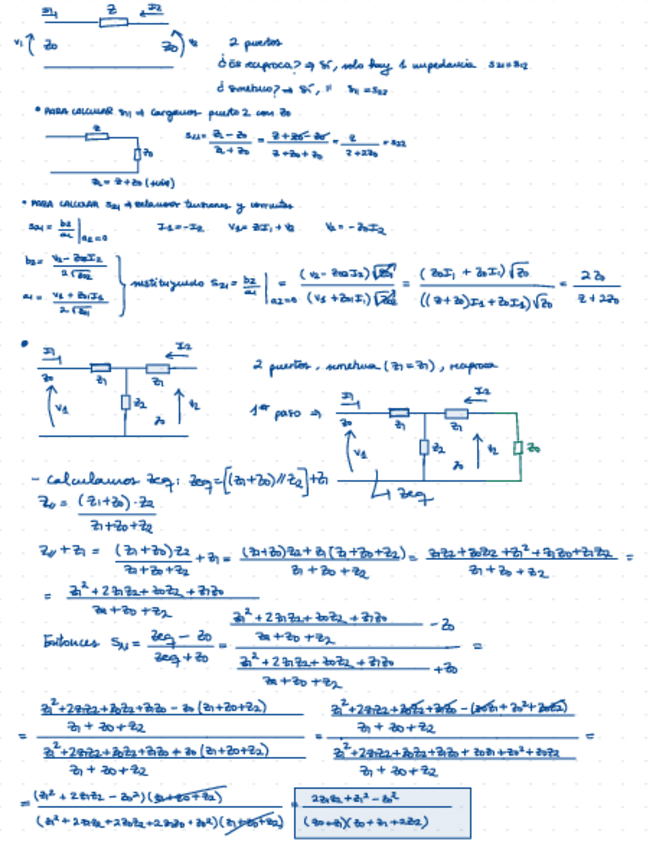 I1 Z I2
V1 Z0 Z0 V2
2 puertos
¿Es recíproca? → Sí, solo hay 1 impedancia S21=S12
¿simétrico? → Sí, " S11=S22
• PARA CALCULAR S11 → Cargamos puerto 2 con Z0
Z
Z0
S11 = Z1 - Z0 / Z1 + Z0 = Z + Z0 - Z0 / Z + Z0 + Z0 = Z / Z + 2Z0 = S22
Z1 = Z + Z0 (serie)
• PARA CALCULAR S21 → relacionar tensiones y corrientes
S21 = b2/a1 | a2=0 I1 = -I2 V1 = ZI1 + V2 V2 = -Z0I2
b2 = V2 - Z02I2 / 2√Z02
a1 = V1 + Z01I1 / 2√Z01
sustituyendo S21 = b2/a1 | a2=0 = (V2 - Z02I2)√Z01 / (V1 + Z01I1)√Z02 = (Z0I1 + Z0I1)√Z0 / ((Z+Z0)I1 + Z0I1)√Z0 = 2Z0 / Z + 2Z0
•
I1 I2
Z0 Z1 Z1
V1 Z2 Z0 V2
2 puertos, simétrica (Z1 = Z1), recíproca
1er paso →
I1 I2
Z0 Z1 Z1
V1 Z2 Z0 V2 Z0
Zeq
- Calculamos Zeq: Zeq = [(Z1+Z0)//Z2] + Z1
Z// = (Z1+Z0)·Z2 / Z1+Z0+Z2
Z// + Z1 = (Z1+Z0)Z2 / Z1+Z0+Z2 + Z1 = (Z1+Z0)Z2 + Z1(Z1+Z0+Z2) / Z1+Z0+Z2 = Z1Z2 + Z0Z2 + Z1² + Z1Z0 + Z1Z2 / Z1+Z0+Z2 =
= Z1² + 2Z1Z2 + Z0Z2 + Z1Z0 / Z1+Z0+Z2
Entonces S11 = Zeq - Z0 / Zeq + Z0 = Z1² + 2Z1Z2 + Z0Z2 + Z1Z0 / Z1+Z0+Z2 - Z0 / Z1² + 2Z1Z2 + Z0Z2 + Z1Z0 / Z1+Z0+Z2 + Z0 =
= Z1² + 2Z1Z2 + Z0Z2 + Z1Z0 - Z0(Z1+Z0+Z2) / Z1+Z0+Z2 / Z1² + 2Z1Z2 + Z0Z2 + Z1Z0 + Z0(Z1+Z0+Z2) / Z1+Z0+Z2 = Z1² + 2Z1Z2 + Z0Z2 + Z1Z0 - (Z0Z1 + Z0² + Z0Z2) / Z1+Z0+Z2 / Z1² + 2Z1Z2 + Z0Z2 + Z1Z0 + Z0Z1 + Z0² + Z0Z2 / Z1+Z0+Z2 =
= (Z1² + 2Z1Z2 - Z0²)(Z1+Z0+Z2) / (Z1² + 2Z1Z2 + 2Z0Z2 + 2Z1Z0 + Z0²)(Z1+Z0+Z2) = 2Z1Z2 + Z1² - Z0² / (Z0+Z1)(Z0+Z1+2Z2)